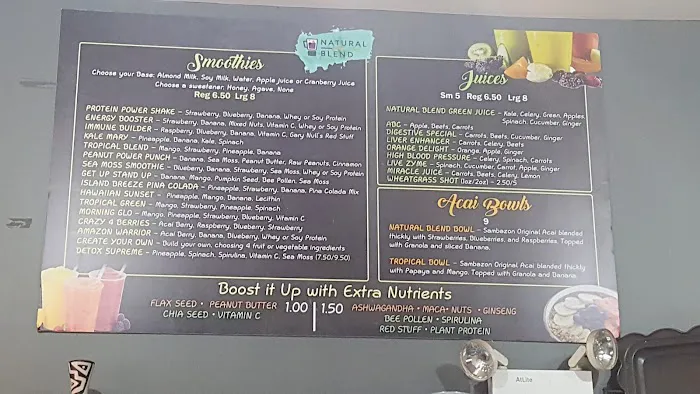 NATURAL
BLEND
Smoothies
Choose your Base: Almond Milk, Soy Milk, Water, Apple juice or Cranberry Juice
Choose a sweetener: Honey, Agave, None
Reg 6.50 Lrg 8
PROTEIN POWER SHAKE – Strawberry, Blueberry, Banana, Whey or Soy Protein
ENERGY BOOSTER – Strawberry, Banana, Mixed Nuts, Vitamin C, Whey or Soy Protein
IMMUNE BUILDER – Raspberry, Blueberry, Banana, Vitamin C, Gary Null's Red Stuff
KALE MARY – Pineapple, Banana, Kale, Spinach
TROPICAL BLEND – Mango, Strawberry, Pineapple, Banana
PEANUT POWER PUNCH – Banana, Sea Moss, Peanut Butter, Raw Peanuts, Cinnamon
SEA MOSS SMOOTHIE – Blueberry, Banana, Strawberry, Sea Moss, Whey or Soy Protein
GET UP STAND UP – Banana, Mango, Pumpkin Seed, Bee Pollen, Sea Moss
ISLAND BREEZE PINA COLADA – Pineapple, Strawberry, Banana, Pina Colada Mix
HAWAIIAN SUNSET – Pineapple, Mango, Banana, Lecithin
TROPICAL GREEN – Mango, Strawberry, Pineapple, Spinach
MORNING GLO – Mango, Pineapple, Strawberry, Blueberry, Vitamin C
CRAZY 4 BERRIES – Acai Berry, Raspberry, Blueberry, Strawberry
AMAZON WARRIOR – Acai Berry, Banana, Blueberry, Whey or Soy Protein
CREATE YOUR OWN – Build your own, choosing 4 fruit or vegetable ingredients
DETOX SUPREME – Pineapple, Spinach, Spirulina, Vitamin C, Sea Moss (7.50/9.50)
Juices
Sm 5 Reg 6.50 Lrg 8
NATURAL BLEND GREEN JUICE – Kale, Celery, Green, Apples,
Spinach, Cucumber, Ginger
ABC – Apple, Beets, Carrots
DIGESTIVE SPECIAL – Carrots, Beets, Cucumber, Ginger
LIVER ENHANCER – Carrots, Celery, Beets
ORANGE DELIGHT – Orange, Apple, Ginger
HIGH BLOOD PRESSURE – Celery, Spinach, Carrots
LIVE ZYME – Spinach, Cucumber, Carrot, Apple, Ginger
MIRACLE JUICE – Carrots, Beets, Celery, Lemon
WHEATGRASS SHOT (1oz/2oz) – 2.50/5
Acai Bowls
9
NATURAL BLEND BOWL – Sambazon Original Acai blended
thickly with Strawberries, Blueberries, and Raspberries. Topped
with Granola and sliced Banana.
TROPICAL BOWL – Sambazon Original Acai blended thickly
with Papaya and Mango. Topped with Granola and Banana.
Boost it Up with Extra Nutrients
FLAX SEED • PEANUT BUTTER 1.00 | 1.50 ASHWAGANDHA • MACA• NUTS • GINSENG
CHIA SEED • VITAMIN C BEE POLLEN • SPIRULINA
RED STUFF • PLANT PROTEIN
AtLite